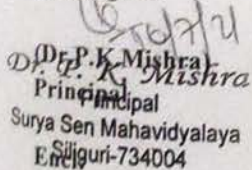 16/7/21
(Dr. P.K.Mishra)
Dr. P. K. Mishra
Principal
Principal
Surya Sen Mahavidyalaya
Siliguri-734004